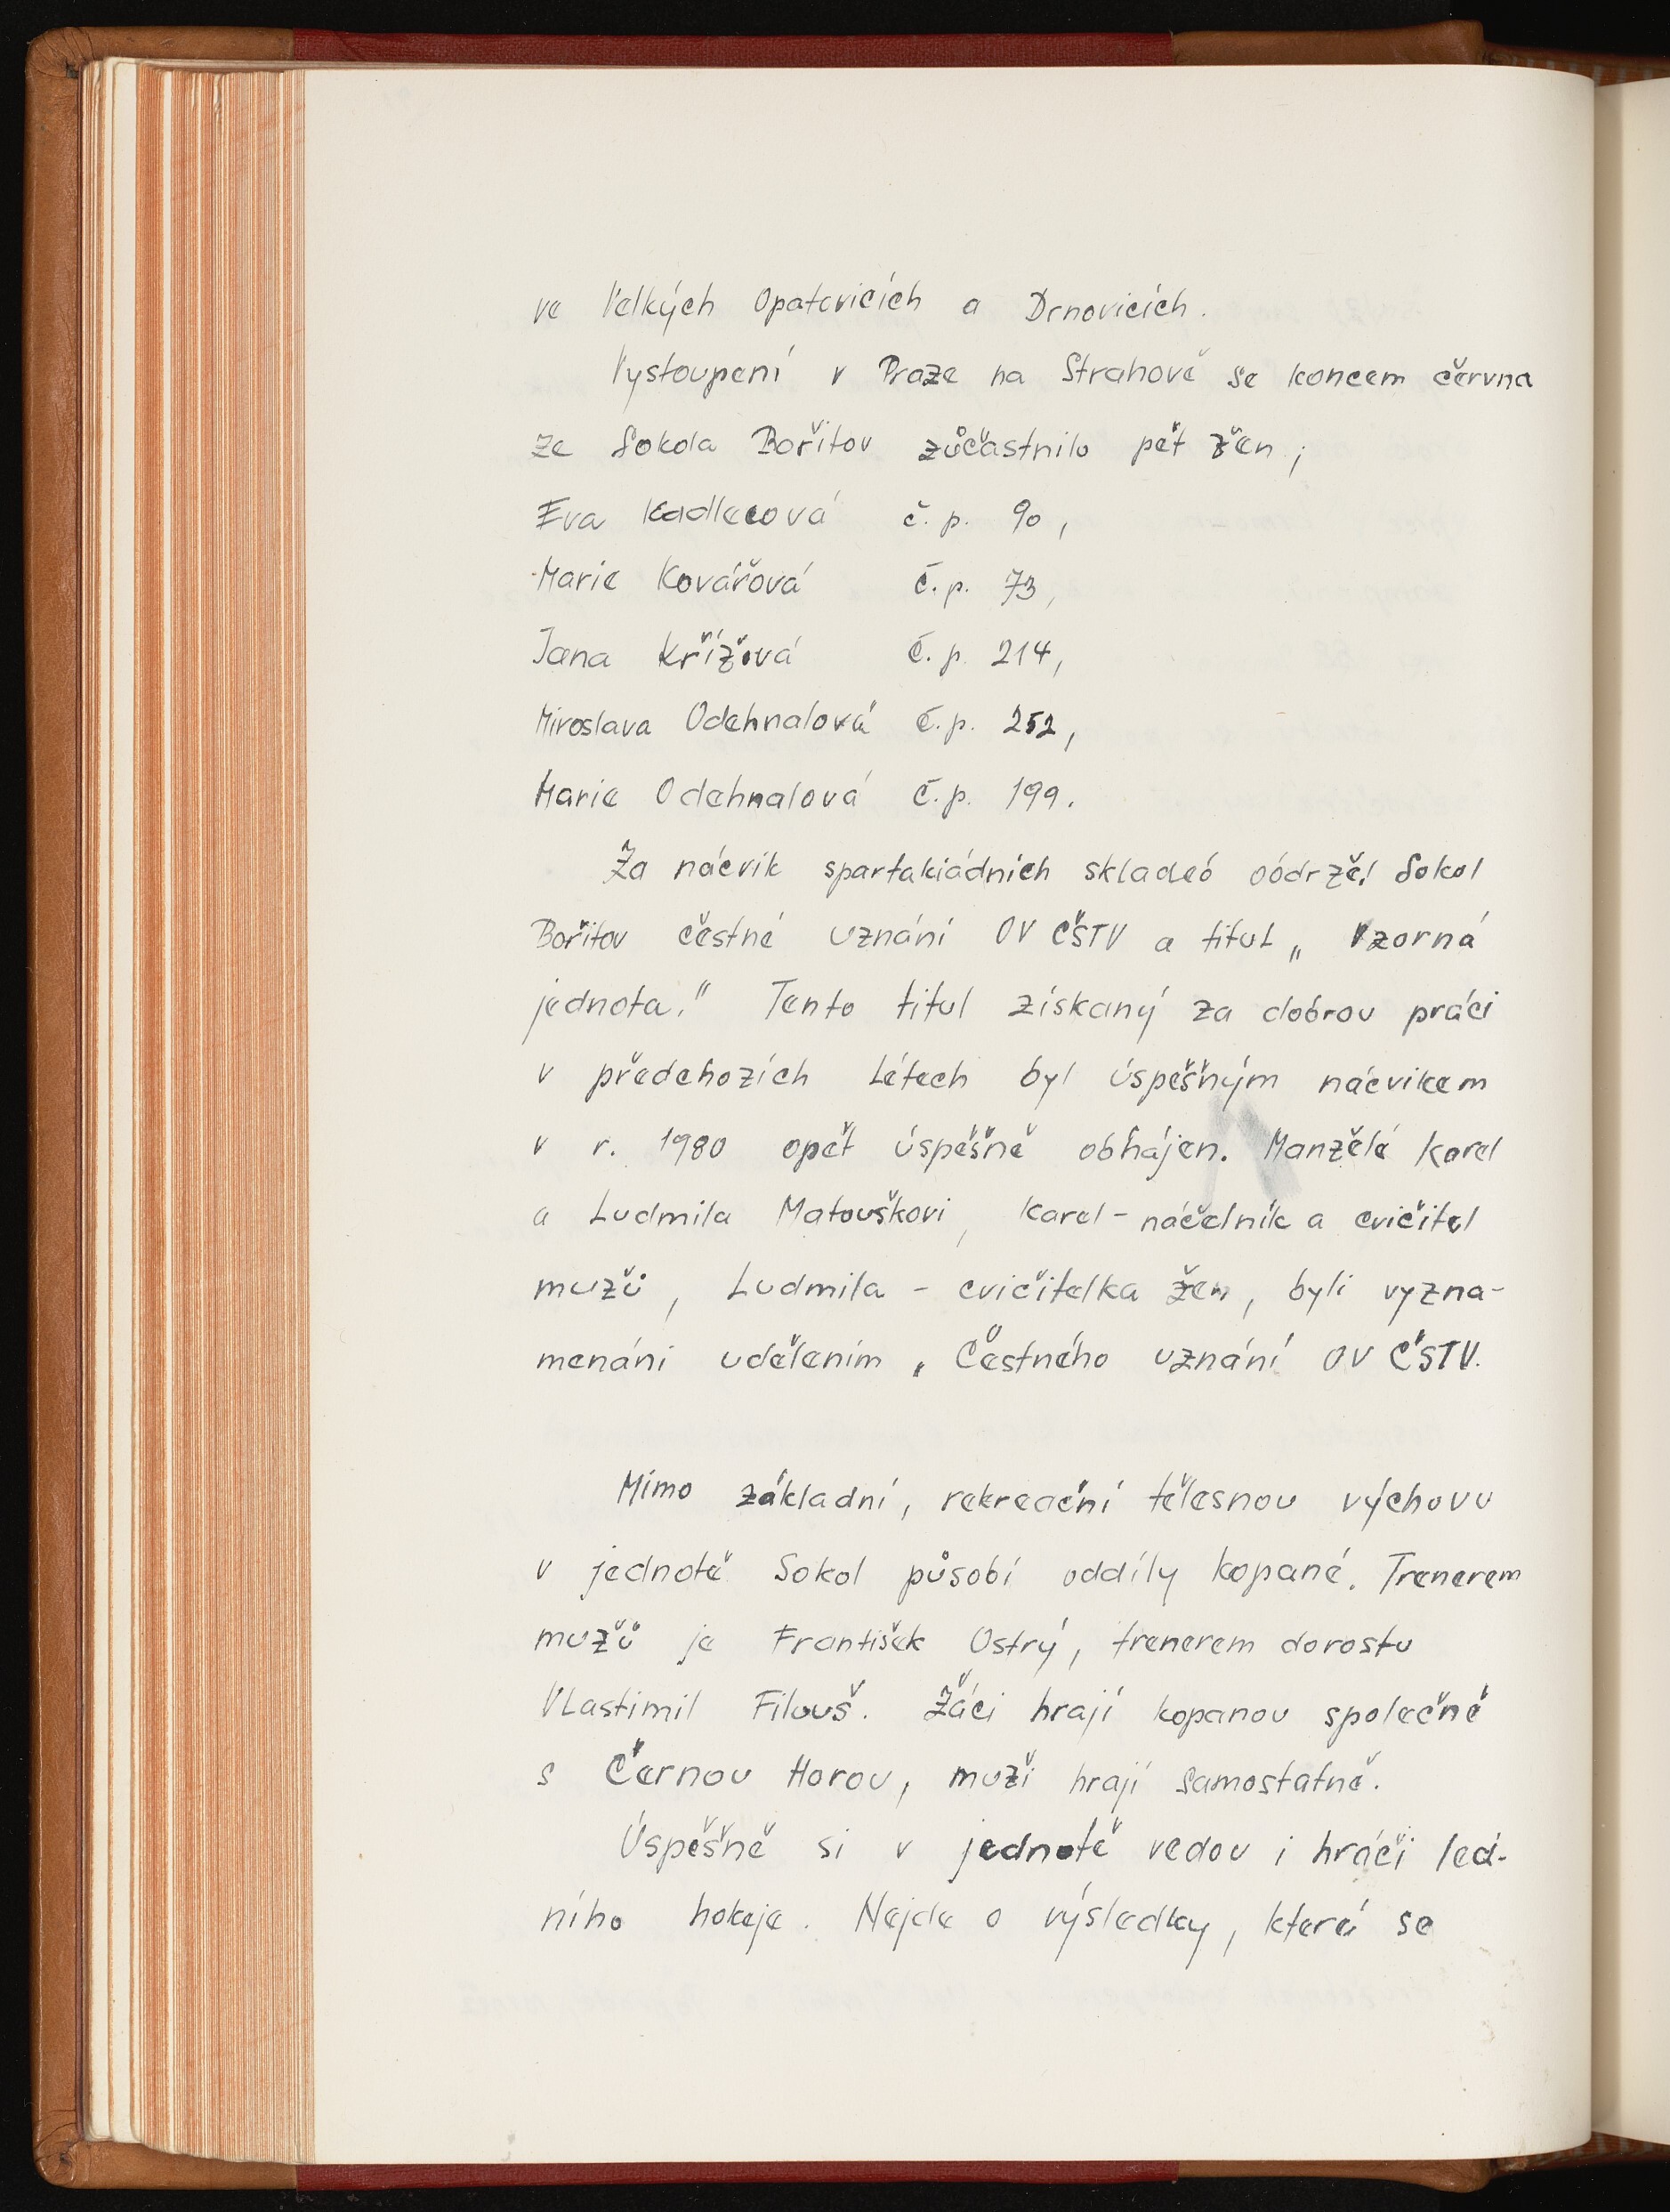 ve Velkých Opatovicích a Drnovicích.
Vystoupení v Praze na Strahově se koncem června
ze Sokola Bořitov zůčastnilo pět žen;
Eva Kadlecová č.p. 90,
Marie Kovářová č.p. 73,
Jana Křížová č.p. 214,
Miroslava Odehnalová č.p. 252,
Marie Odehnalová č.p. 199.
Za nácvik spartakiádních skladeb obdržel Sokol
Bořitov čestné uznání OV ČSTV a titul „Vzorná
jednota." Tento titul získaný za dobrou práci
v předchozích létech byl úspěšným nácvikem
v r. 1980 opět úspěšně obhájen. Manželé Karel
a Ludmila Matouškovi, Karel - náčelník a cvičitel
mužů, Ludmila - cvičitelka žen, byli vyzna-
menáni udělením „Čestného uznání OV ČSTV.
Mimo základní, rekreační tělesnou výchovu
v jednotě Sokol působí oddíly kopané. Trenerem
mužů je František Ostrý, trenerem dorostu
Vlastimil Filouš. Žáci hrají kopanou společně
s Černou Horou, muži hrají samostatně.
Úspěšně si v jednotě vedou i hráči led-
ního hokeje. Nejde o výsledky, které se